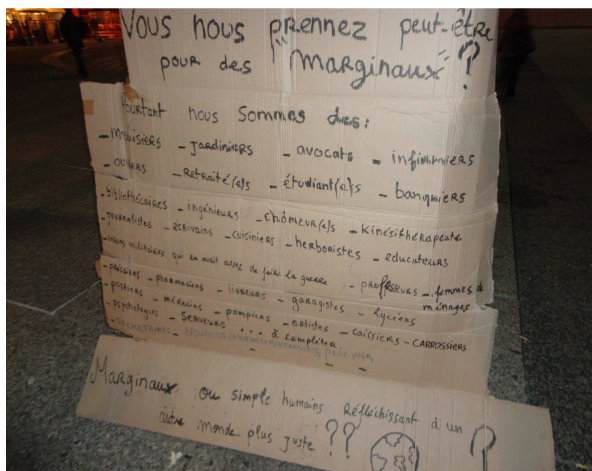 Vous nous prennez peut-être
pour des "marginaux" ?
Pourtant nous sommes des :
- menuisiers - jardiniers - avocats - infirmiers
- ouvriers - Retraité(e)s - étudiant(e)s - banquiers
- bibliothécaires - ingénieurs - chômeur(e)s - kinésithérapeute
- journalistes - écrivains - cuisiniers - herboristes - educateurs
militaires qui en avait assez de faire la guerre - professeurs - femmes de
ménages
- policières - pharmaciens - livreurs - garagistes - lycéens
- postiers - médecins - pompiers - artistes - caissiers - CARROSSIERS
- psychologues - serveurs ... à compléter.
Marginaux ou simple humains Réfléchissant à un
autre monde plus juste ???